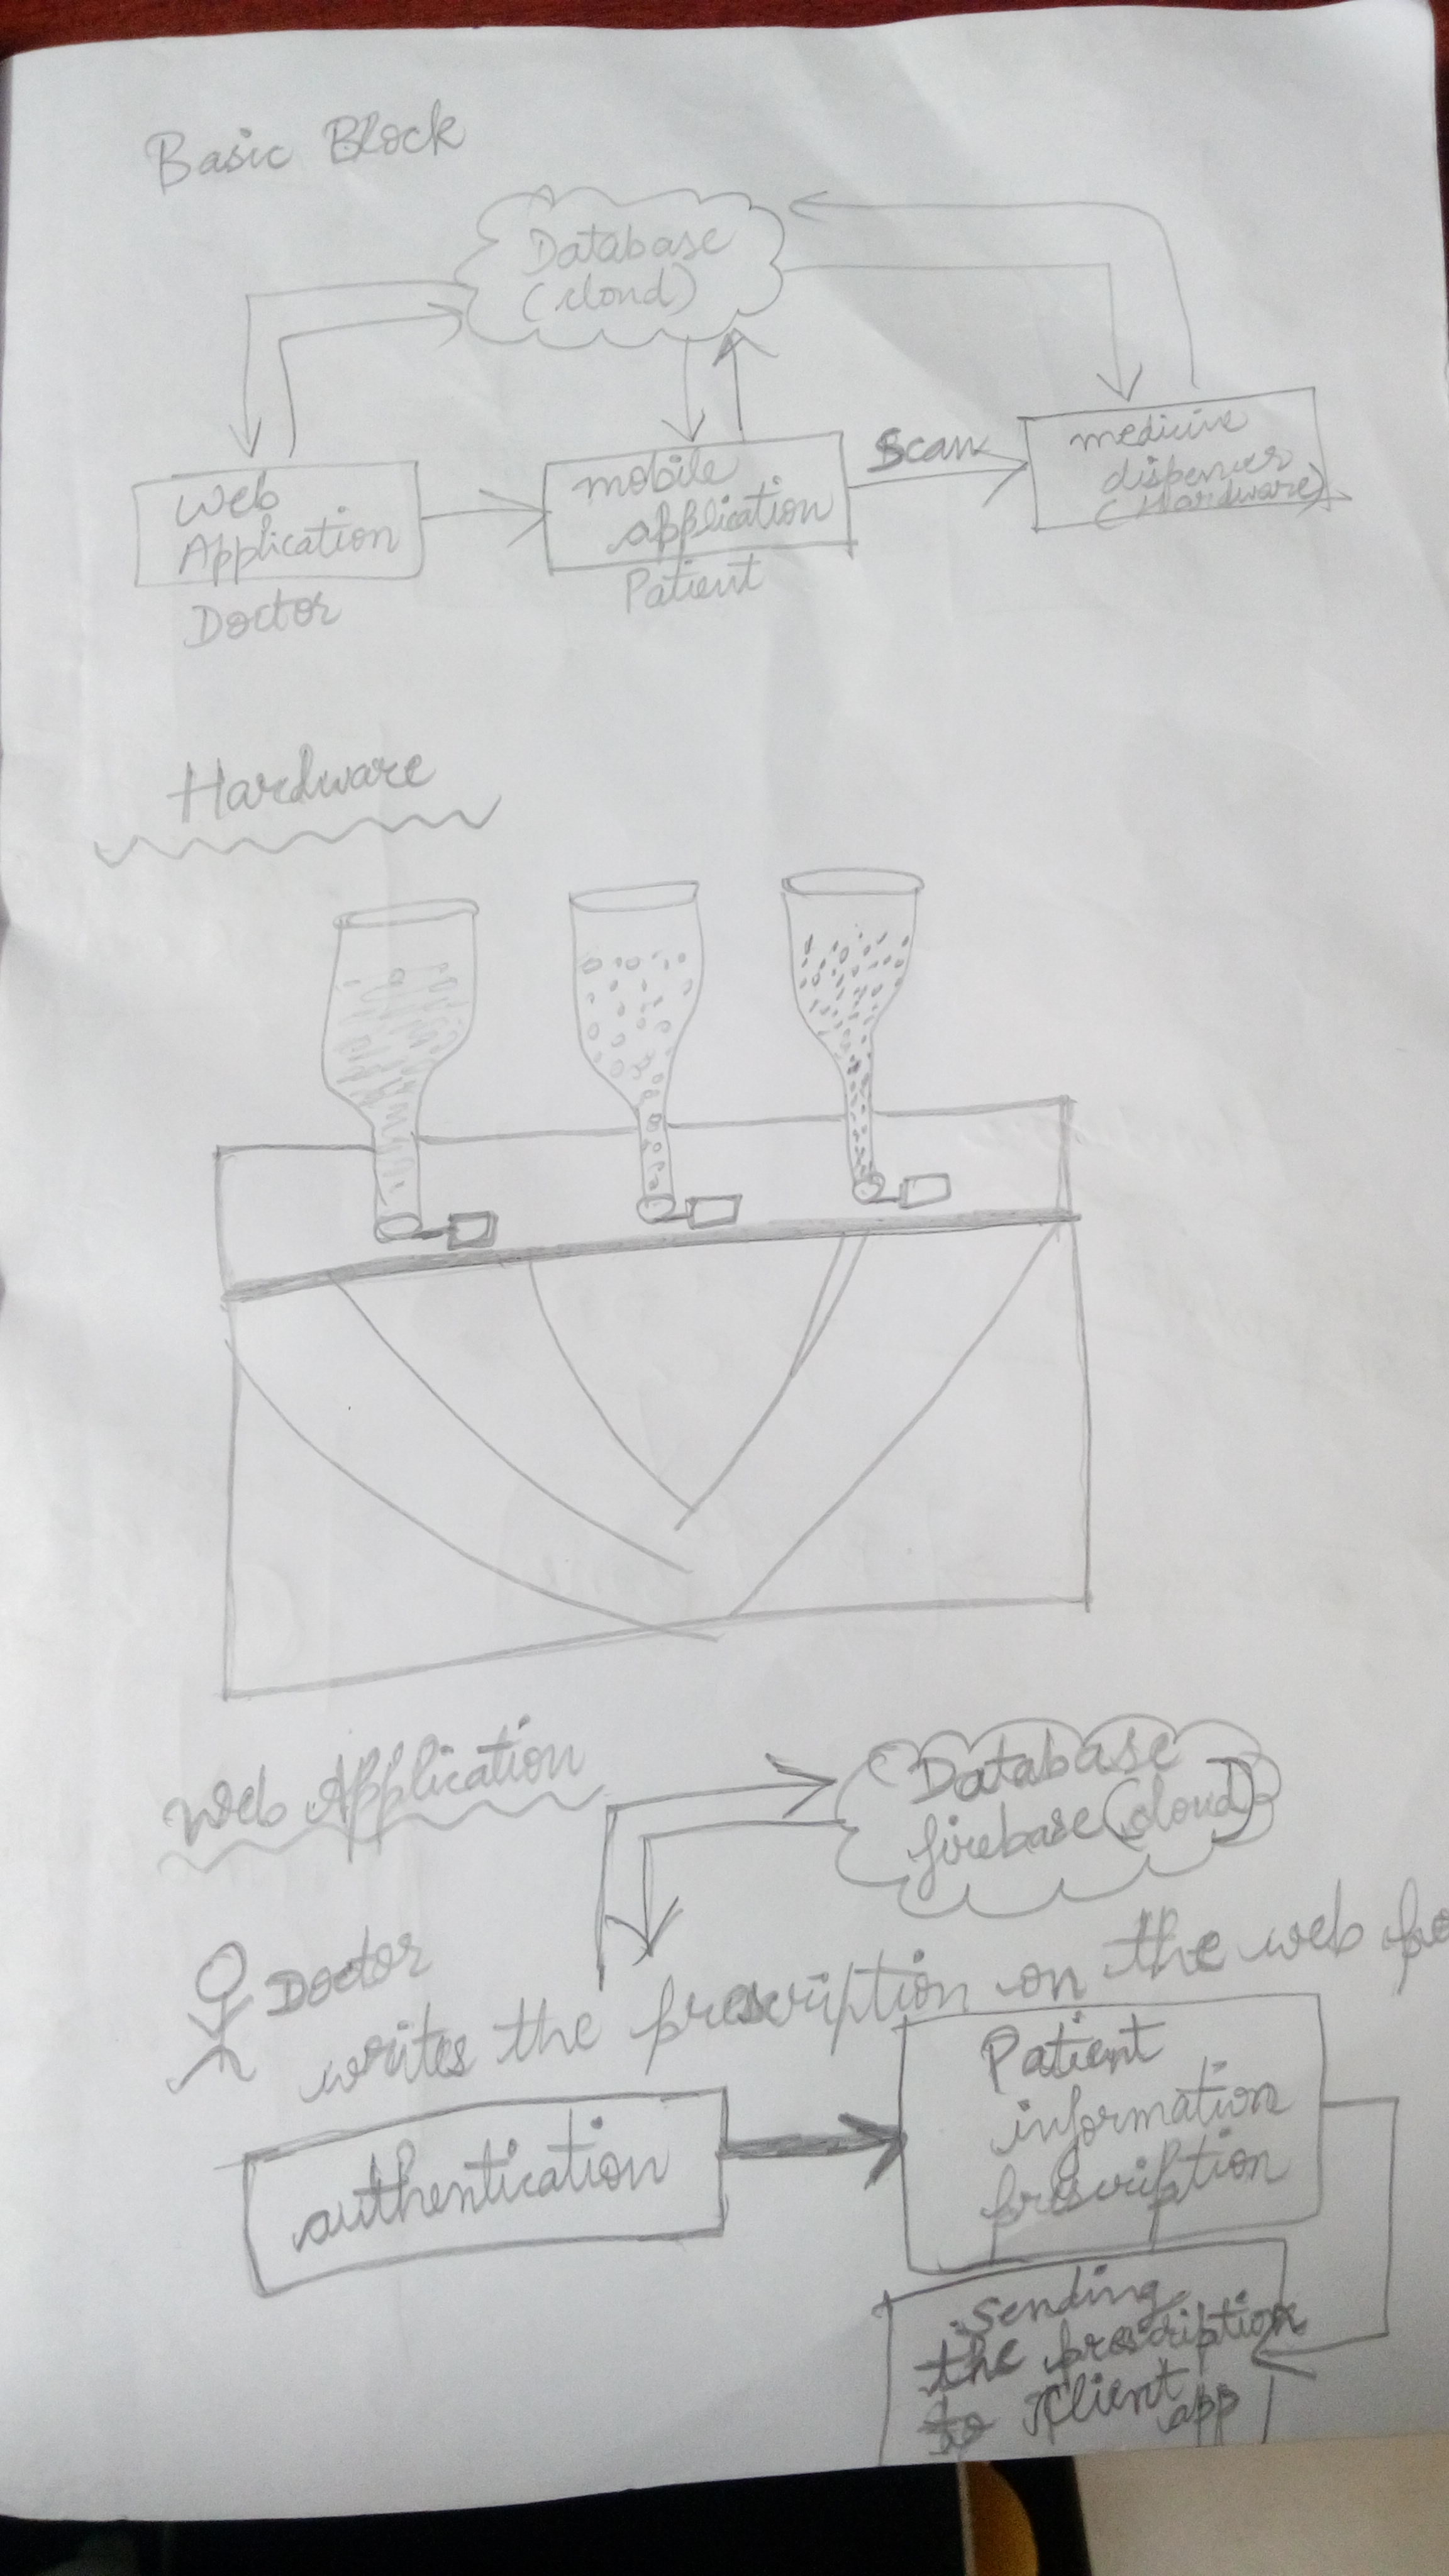 Basic Block
Database
(cloud)
Web
Application
Doctor
mobile
application
Patient
Scan
medicine
dispenser
(Hardware)
Hardware
Web Application
Database
firebase (cloud)
Doctor
writes the prescription on the web
authentication
Patient
information
prescription
Sending
the prescription
to
app